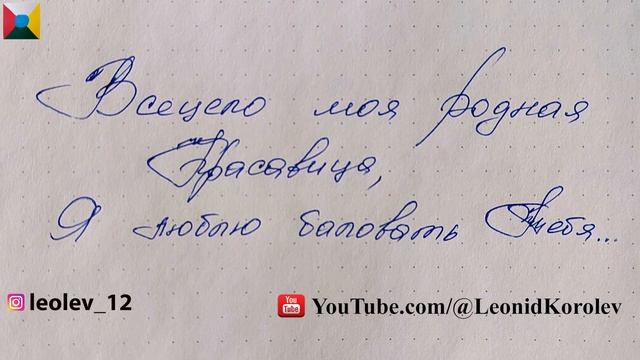 Всецело моя родная
Красавица,
Я люблю баловать Тебя...
leolev_12
You Tube
YouTube.com/@LeonidKorolev